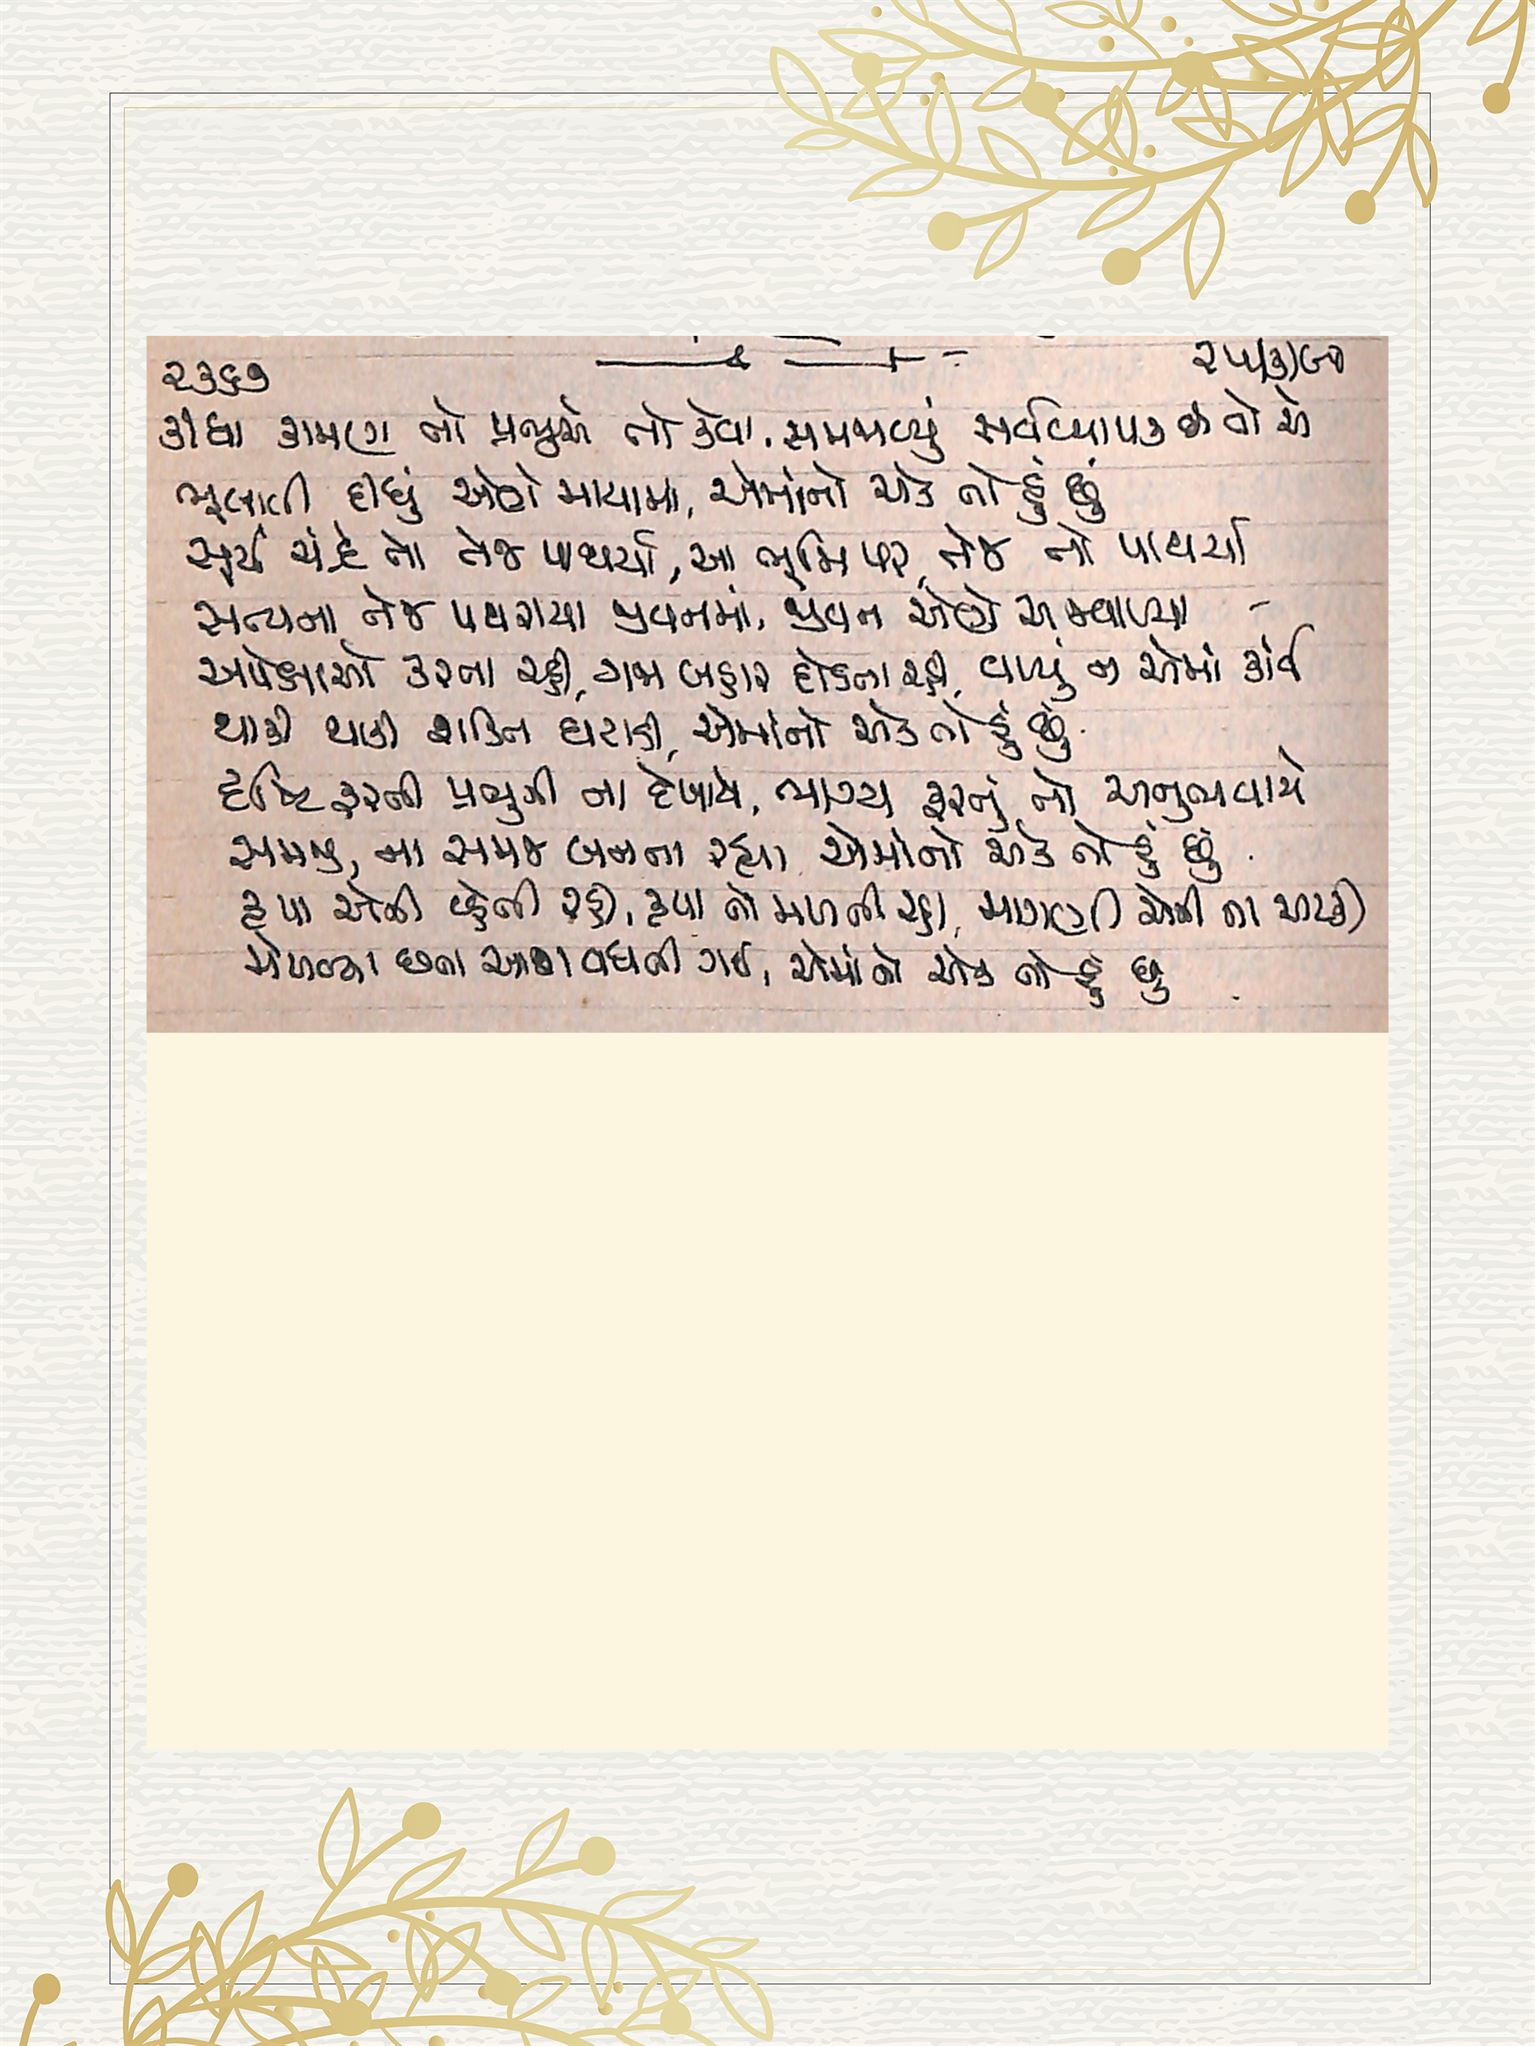 ૨૩૬૭ ૨૫/૩/૯૦
કીધા કામણ તો પ્રભુએ તો કેવા, સમજાવ્યું સર્વવ્યાપક છે તો એ
ભુલાવી દીધું એણે માયામાં, એમાંનો એક તો હું છું
સૂર્ય ચંદ્રે તો તેજ પાથર્યા, આ ભૂમિ પર, તેજ તો પાથર્યા
સત્યના તેજ પથરાયા જીવનમાં, જીવન એણે અજવાળ્યા
અપેક્ષાઓ કરતા રહી, ગજા બહાર દોડતા રહી, વળ્યું ન એમાં કાંઈ
થાકી થાકી શક્તિ ઘટાડી, એમાંનો એક તો હું છું.
દૃષ્ટિ ક્રૂરની પ્રભુની ના દેખાયે, ભાગ્ય ક્રૂરનું તો અનુભવાયે
સમજુ, ના સમજ બનતા રહ્યા, એમાંનો એક તો હું છું.
કૃપા એની વ્હેતી રહી, કૃપા તો મળતી રહી, માગણી એની ના અટકી
મેળવ્યા છતા આશા વધતી ગઈ, એમાંનો એક તો હું છુ